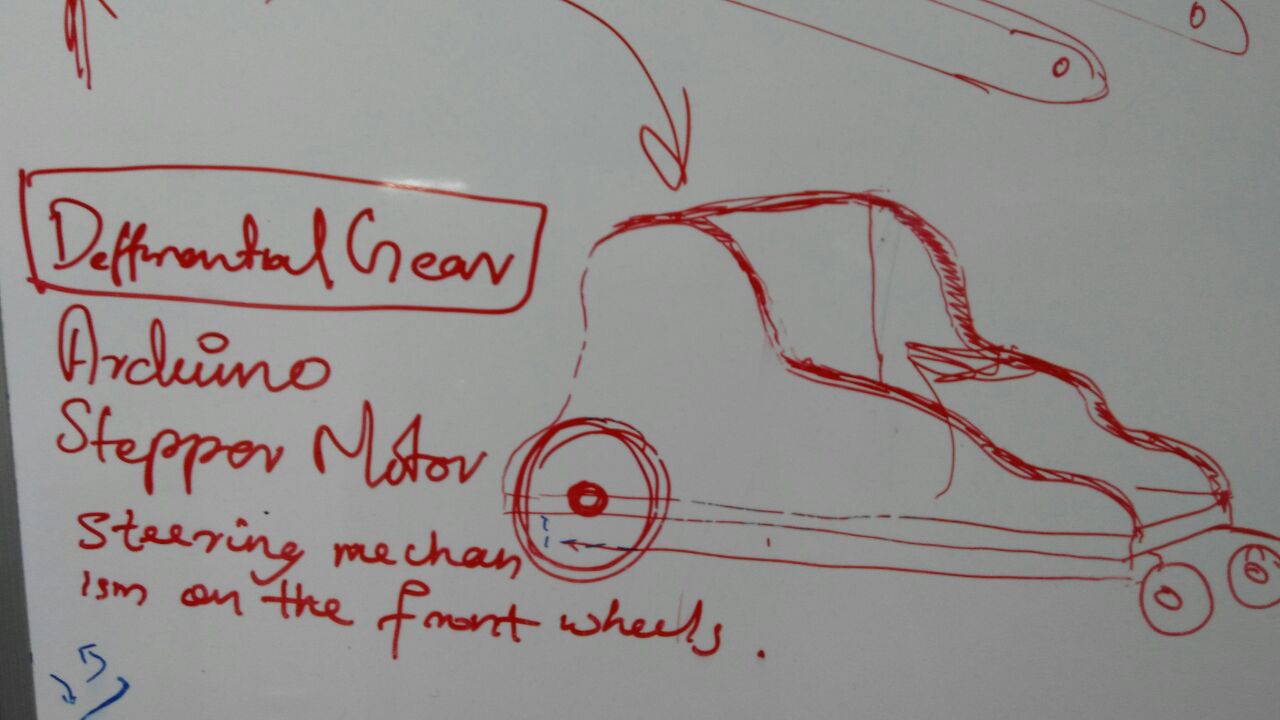 Defferential Gear
Arduino
Stepper Motor
Steering mechan
ism on the front wheels.